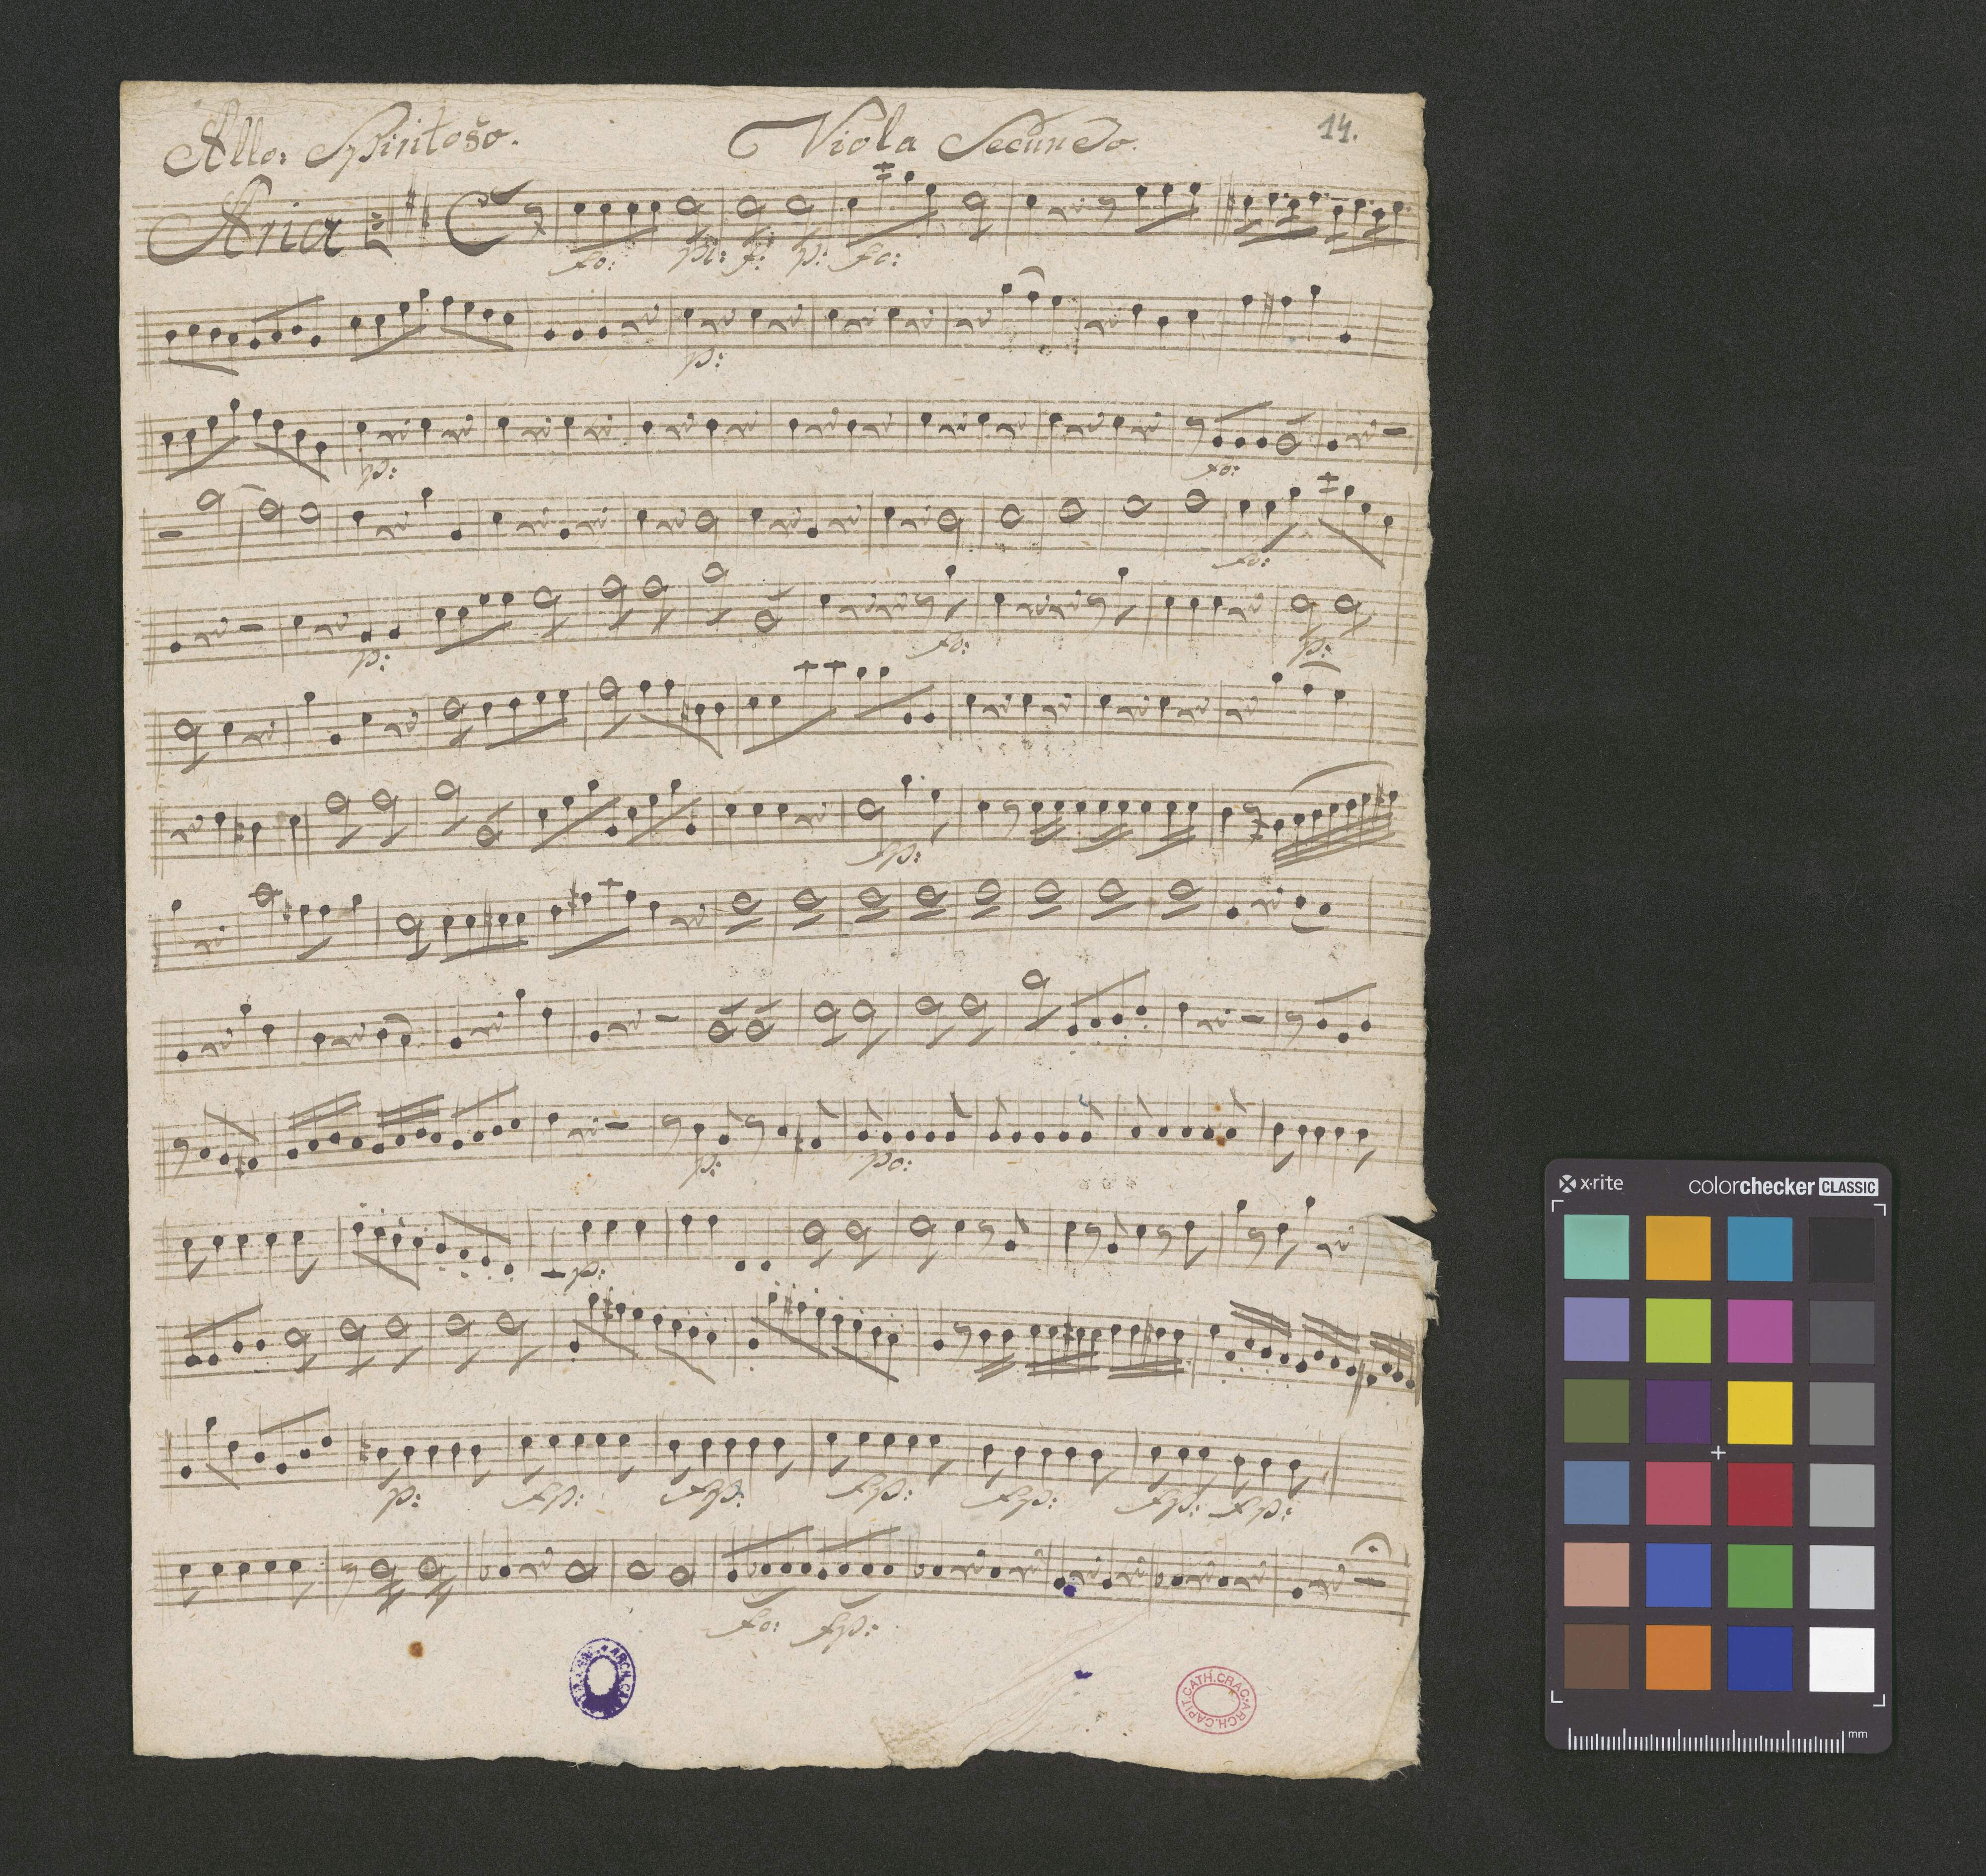 Allo: Spiritoso.
Viola Secundo.
14.
Aria
fo: po: f: p: fo:
p:
p: fo:
fo:
p: fo: p:
fp:
p: po:
p:
p: fp: fp: fp: fp: fp: fp:
fo: fp:
ARCH.CAPIT.CATH.CRAC.
x-rite
colorchecker CLASSIC
mm